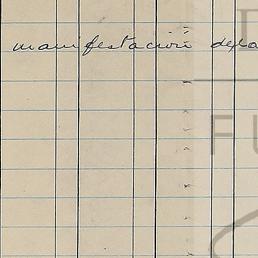 manifestación de la